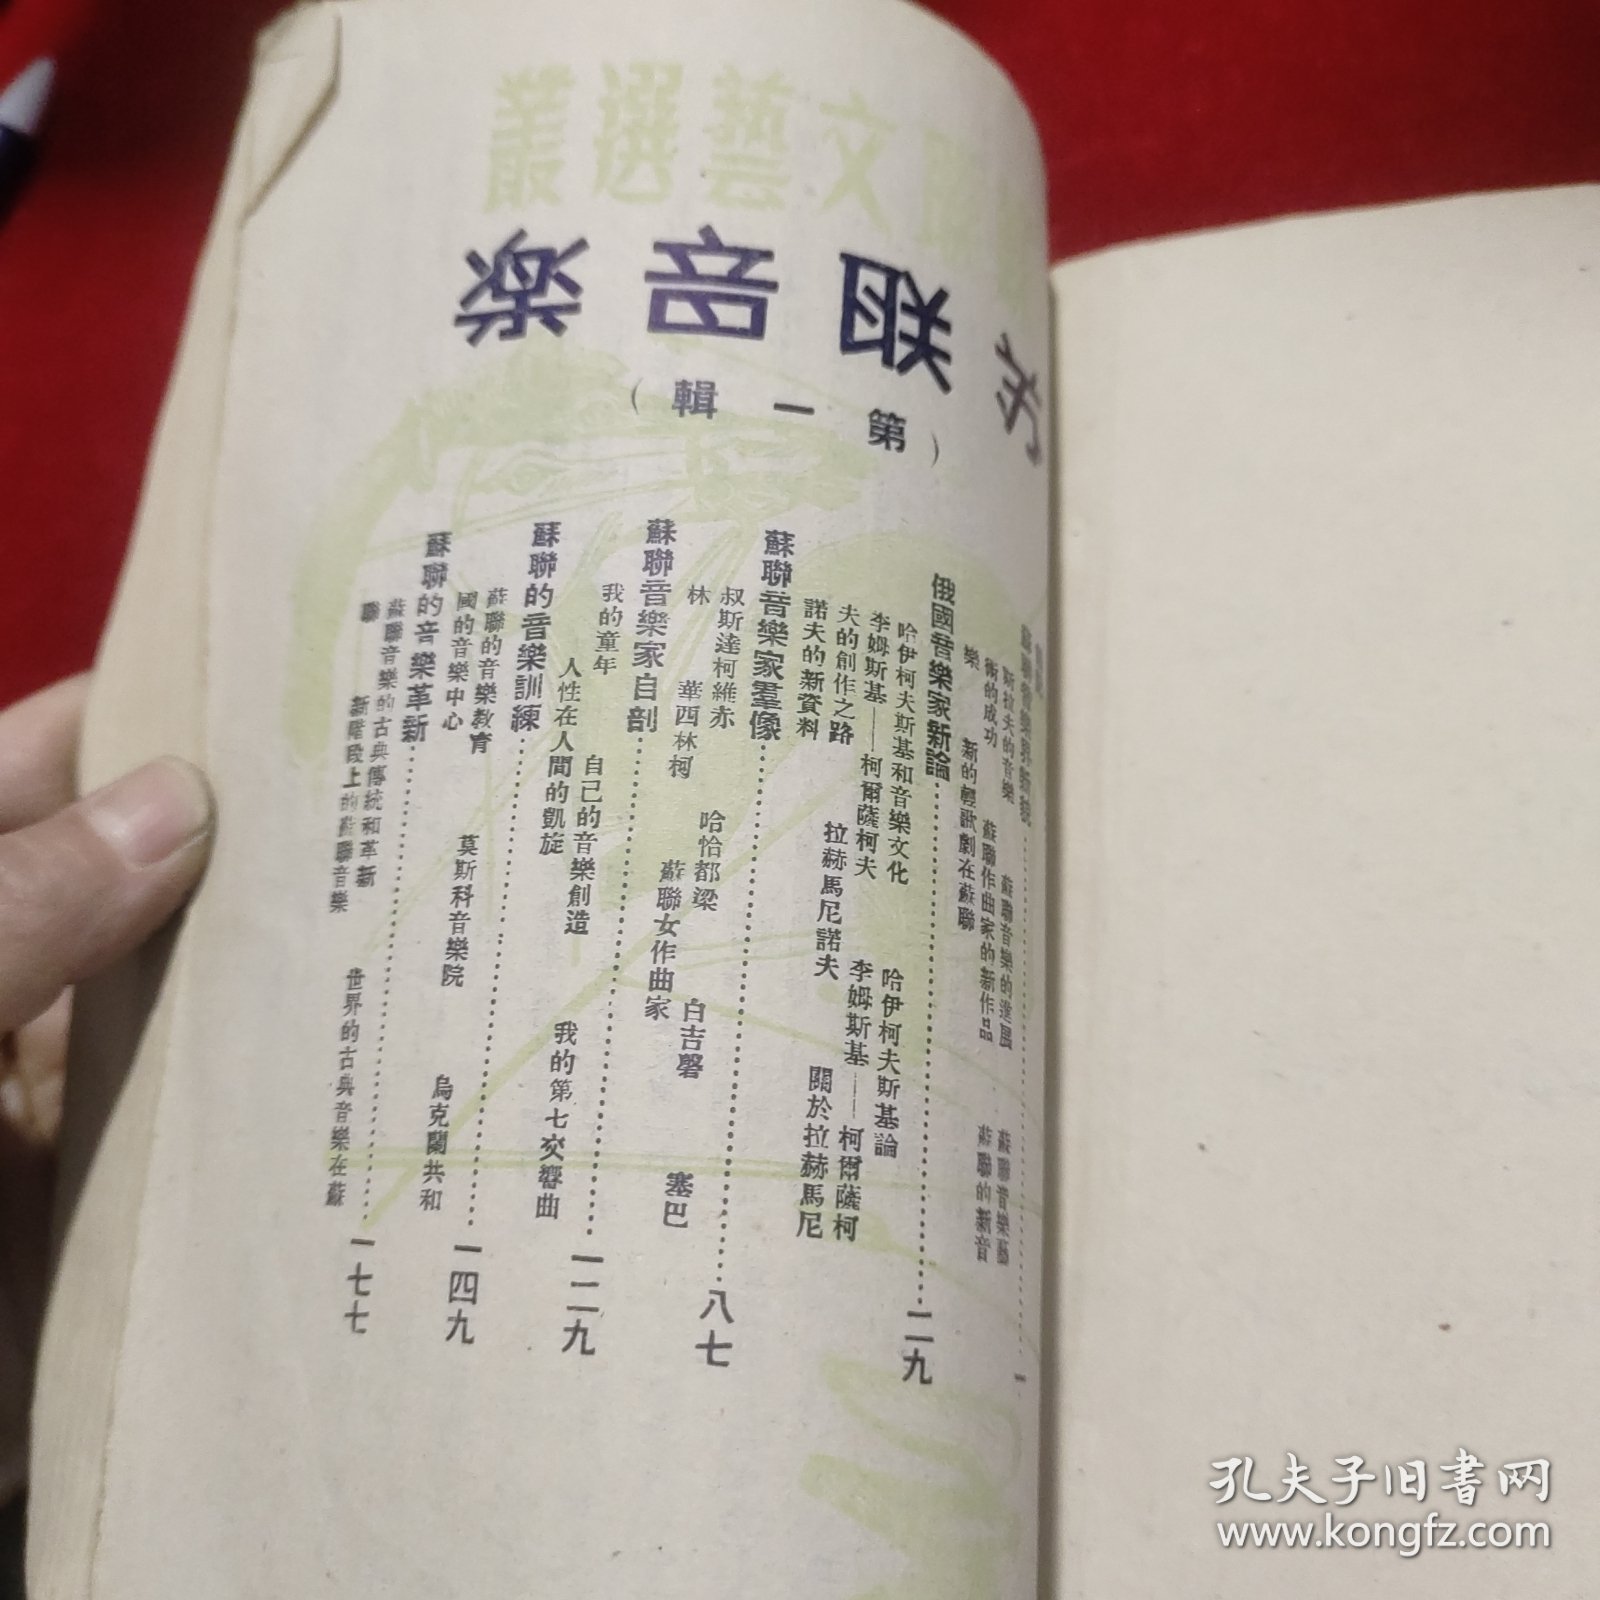 聯文藝選叢
聯音楽
（第一輯）
斯拉夫的音樂　蘇聯音樂的進展　蘇聯音樂藝
術的成功　蘇聯作曲家的新作品　蘇聯的新音
樂　新的輕歌劇在蘇聯
俄國音樂家新論…………二九
哈伊柯夫斯基和音樂文化　哈伊柯夫斯基論
李姆斯基——柯爾薩柯夫　李姆斯基——柯爾薩柯
夫的創作之路　拉赫馬尼諾夫　關於拉赫馬尼
諾夫的新資料
蘇聯音樂家羣像…………八七
叔斯達柯維赤　哈恰都梁　白吉磬　塞巴
林　華西林柯　蘇聯女作曲家
蘇聯音樂家自剖…………一二九
我的童年　自己的音樂創造　我的第七交響曲
人性在人間的凱旋
蘇聯的音樂訓練…………一四九
蘇聯的音樂教育　莫斯科音樂院　烏克蘭共和
國的音樂中心
蘇聯的音樂革新…………一七七
蘇聯音樂的古典傳統和革新　世界的古典音樂在蘇
聯　新階段上的蘇聯音樂
孔夫子旧书网
www.kongfz.com